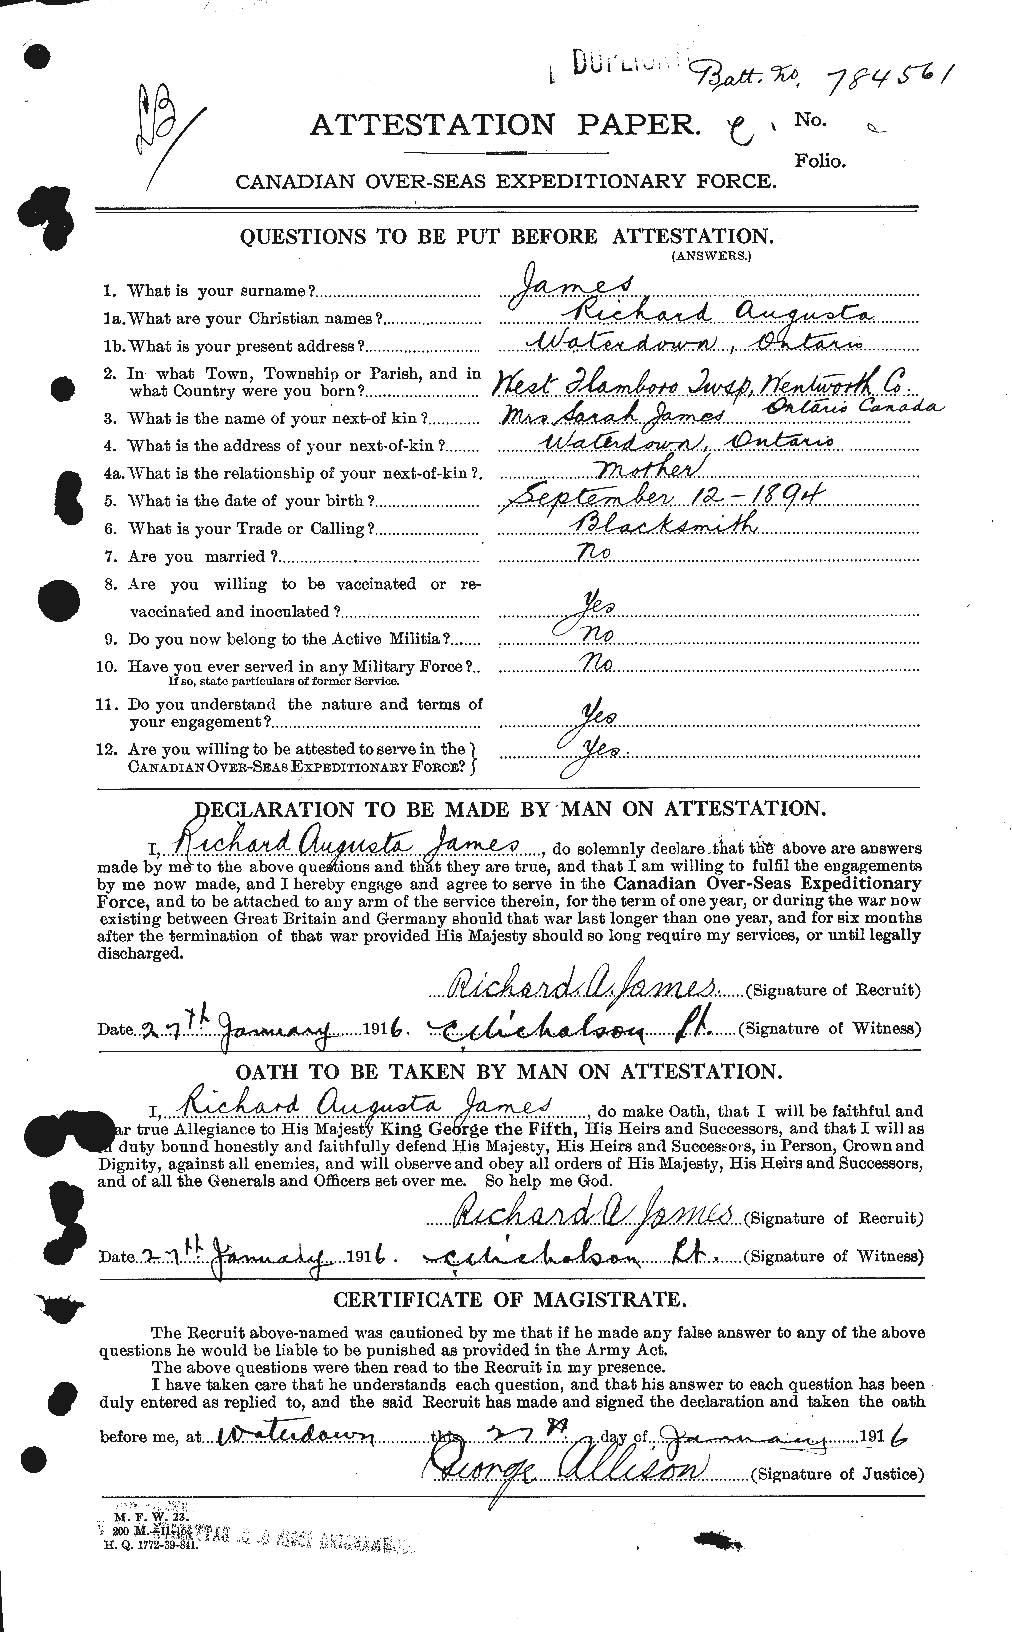 DUPLICATE
Batt. No. 784561
LB
ATTESTATION PAPER.
No.
Folio.
CANADIAN OVER-SEAS EXPEDITIONARY FORCE.
QUESTIONS TO BE PUT BEFORE ATTESTATION.
(ANSWERS.)
1. What is your surname? James
1a. What are your Christian names? Richard Augusta
1b. What is your present address? Waterdown, Ontario
2. In what Town, Township or Parish, and in
what Country were you born? West Flamboro Twsp, Wentworth Co.
Ontario Canada
3. What is the name of your next-of kin? Mrs Sarah James
4. What is the address of your next-of-kin? Waterdown, Ontario
4a. What is the relationship of your next-of-kin? Mother
5. What is the date of your birth? September 12-1894
6. What is your Trade or Calling? Blacksmith
7. Are you married? No
8. Are you willing to be vaccinated or re-
vaccinated and inoculated? Yes
9. Do you now belong to the Active Militia? No
10. Have you ever served in any Military Force? No
If so, state particulars of former Service.
11. Do you understand the nature and terms of
your engagement? Yes
12. Are you willing to be attested to serve in the
CANADIAN OVER-SEAS EXPEDITIONARY FORCE? Yes.
DECLARATION TO BE MADE BY MAN ON ATTESTATION.
I, Richard Augusta James, do solemnly declare that the above are answers
made by me to the above questions and that they are true, and that I am willing to fulfil the engagements
by me now made, and I hereby engage and agree to serve in the Canadian Over-Seas Expeditionary
Force, and to be attached to any arm of the service therein, for the term of one year, or during the war now
existing between Great Britain and Germany should that war last longer than one year, and for six months
after the termination of that war provided His Majesty should so long require my services, or until legally
discharged.
Richard A. James (Signature of Recruit)
Date 27th January 1916. C Nicholson Lt. (Signature of Witness)
OATH TO BE TAKEN BY MAN ON ATTESTATION.
I, Richard Augusta James, do make Oath, that I will be faithful and
ar true Allegiance to His Majesty King George the Fifth, His Heirs and Successors, and that I will as
duty bound honestly and faithfully defend His Majesty, His Heirs and Successors, in Person, Crown and
Dignity, against all enemies, and will observe and obey all orders of His Majesty, His Heirs and Successors,
and of all the Generals and Officers set over me. So help me God.
Richard A James (Signature of Recruit)
Date 27th January 1916. C Nicholson Lt. (Signature of Witness)
CERTIFICATE OF MAGISTRATE.
The Recruit above-named was cautioned by me that if he made any false answer to any of the above
questions he would be liable to be punished as provided in the Army Act.
The above questions were then read to the Recruit in my presence.
I have taken care that he understands each question, and that his answer to each question has been
duly entered as replied to, and the said Recruit has made and signed the declaration and taken the oath
before me, at Waterdown this 27th day of January 1916
George Allison (Signature of Justice)
M. F. W. 23.
200 M.
H. Q. 1772-39-841.